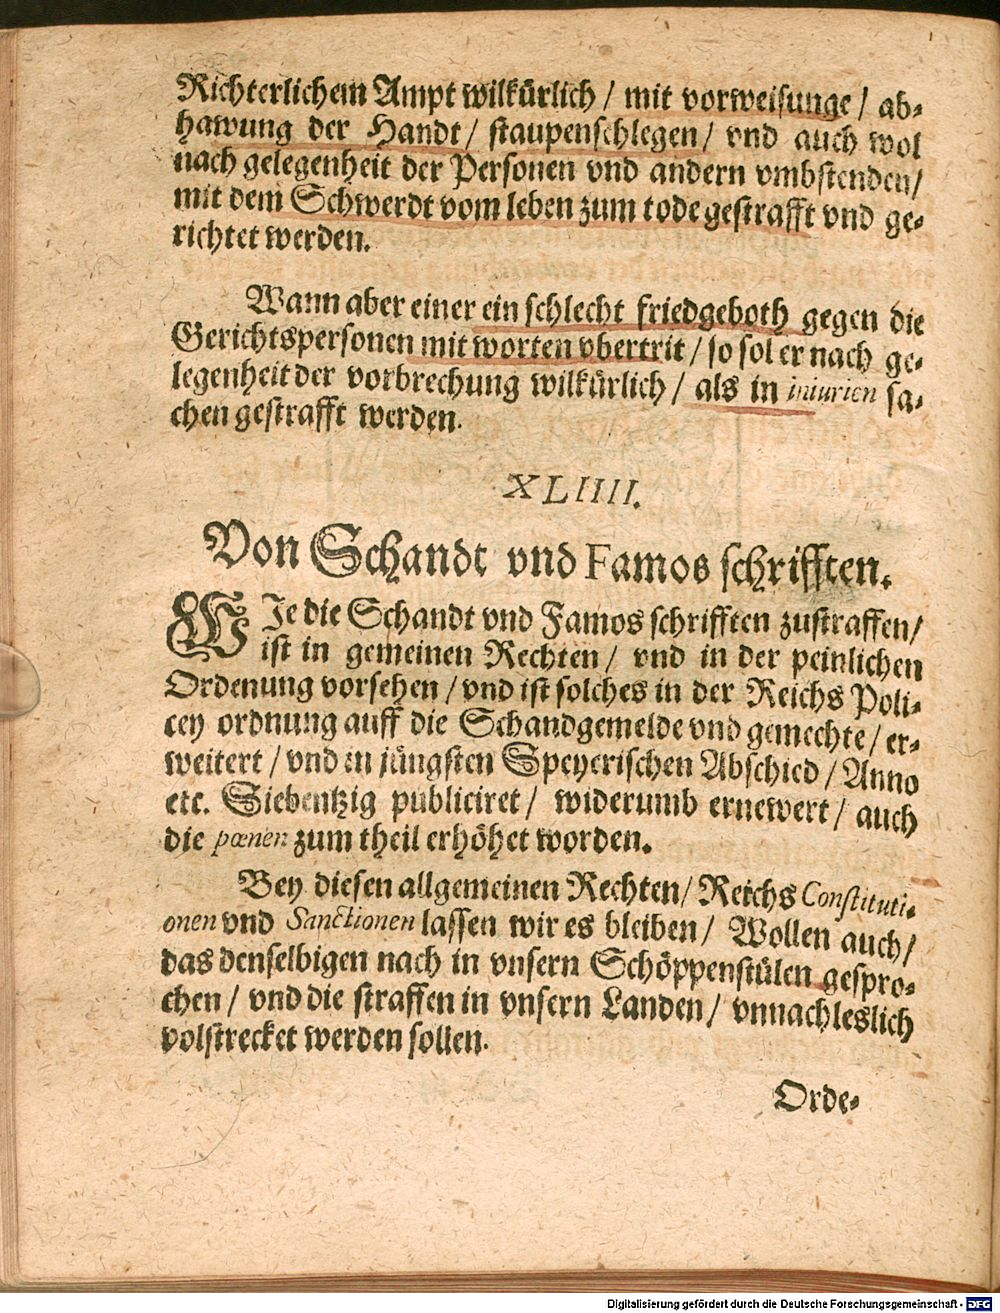 Richterlichem Ampt wilkürlich / mit vorweisunge / ab-
hawung der Handt / staupenschlegen / vnd auch wol
nach gelegenheit der Personen vnd andern vmbstenden /
mit dem Schwerdt vom leben zum tode gestrafft vnd ge-
richtet werden.
Wann aber einer ein schlecht friedgeboth gegen die
Gerichtspersonen mit worten vbertrit / so sol er nach ge-
legenheit der vorbrechung wilkürlich / als in iniurien sa-
chen gestrafft werden.
XLIIII.
Von Schandt vnd Famos schrifften.
WJe die Schandt vnd Famos schrifften zustraffen /
ist in gemeinen Rechten / vnd in der peinlichen
Ordenung vorsehen / vnd ist solches in der Reichs Poli-
cey ordnung auff die Schandgemelde vnd gemechte / er-
weitert / vnd in jüngsten Speyerischen Abschied / Anno
etc. Siebentzig publiciret / widerumb ernewert / auch
die pœnen zum theil erhöhet worden.
Bey diesen allgemeinen Rechten / Reichs Constituti-
onen vnd Sanctionen lassen wir es bleiben / Wollen auch /
das denselbigen nach in vnsern Schöppenstülen gespro-
chen / vnd die straffen in vnsern Landen / vnnachleslich
volstrecket werden sollen.
Orde-
Digitalisierung gefördert durch die Deutsche Forschungsgemeinschaft - DFG